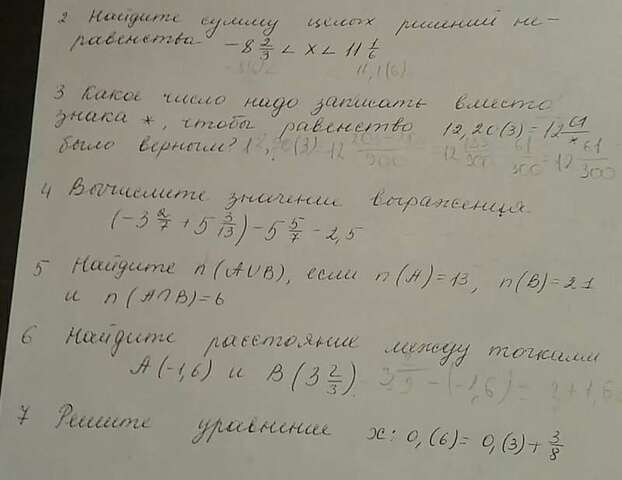 2 Найдите сумму целых решений не-
равенства -8 2/3 < x < 11 1/6
11,1(6)
3 Какое число надо записать вместо
знака *, чтобы равенство 12,20(3) = 12 61/*
было верным? 12,20(3) 12 /900 = 12 183/900 61/300 = 12 61/300
4 Вычислите значение выражения
(-3 2/7 + 5 3/13) - 5 5/7 - 2,5
5 Найдите n(A∪B), если n(A) = 13, n(B) = 21
и n(A∩B) = 6
6 Найдите расстояние между точками
A(-1,6) и B(3 2/3) - (-1,6) = + 1,6
7 Решите уравнение x : 0,(6) = 0,(3) + 3/8